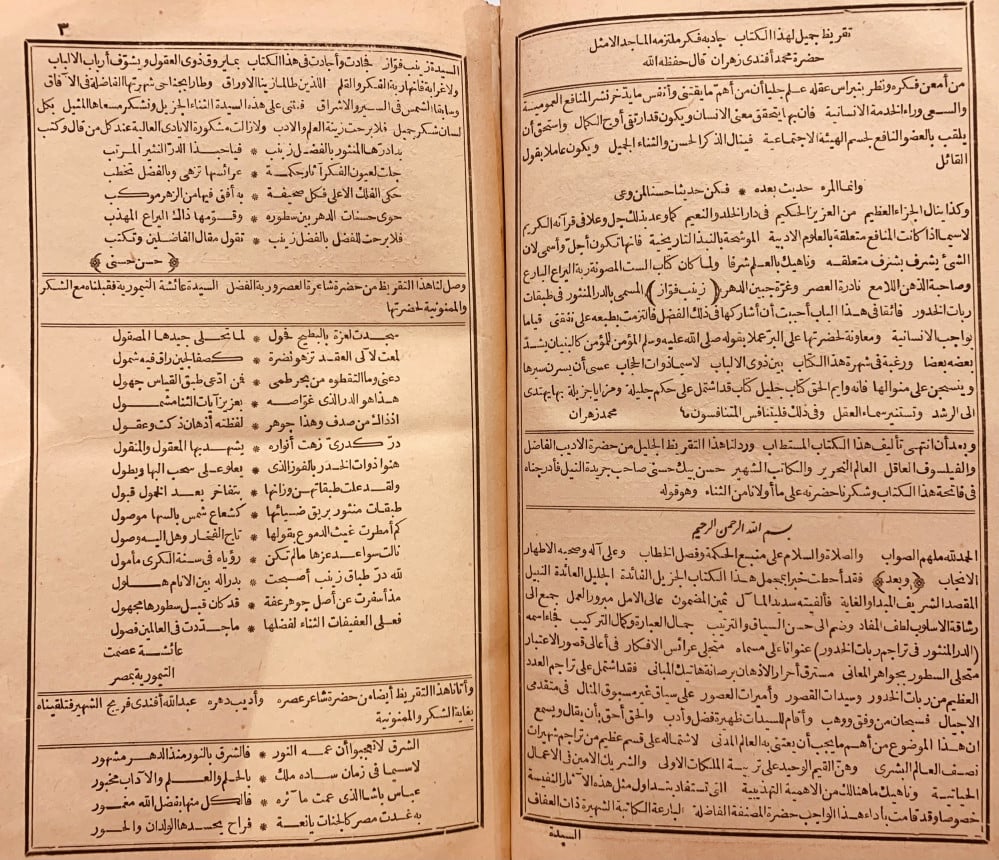 تقريظ جميل لهذا الكتاب جادبه فكر ملتزمه الماجد الامثل
حضرة محمد أفندى زهران قال حفظه الله
من أمعن فكره ونظر بنبراس عقله علم جليا أن من أهم ما يقتنى وأنفس ما يدّخر نشر المنافع العمومية
والسعى وراء الخدمة الانسانية فان بهما يتحقق معنى الانسان ويكون قد ارتقى أوج الكمال واستحق أن
يلقب بالعضو النافع لجسم الهيئة الاجتماعية فينال الذكر الحسن والثناء الجميل ويكون عاملا بقول
القائل
وانما المرء حديث بعده * فكن حديثا حسنا لمن وعى
وكذا ينال الجزاء العظيم من العزيز الحكيم فى دار الخلد والنعيم كما وعد بذلك جل وعلا فى قرآنه الكريم
لاسيما اذا كانت المنافع متعلقة بالعلوم الادبية الموشحة بالنبذ التاريخية فانها تكون أجلّ وأسمى لان
الشئ يشرف بشرف متعلقه وناهيك بالعلم شرفا ولما كان كتاب الست المصونة ربة اليراع البارع
وصاحبة الذهن اللامع نادرة العصر وغرّة جبين الدهر (زينب فوّاز) المسمى بالدر المنثور فى طبقات
ربات الخدور فائقا فى هذا الباب أحببت أن أشاركها فى ذلك الفضل فالتزمت بطبعه على نفقتى قياما
بواجب الانسانية ومعاونة لحضرتها على البرّ عملا بقوله صلى الله عليه وسلم المؤمن للمؤمن كالبنيان يشدّ
بعضه بعضا ورغبة فى شهرة هذا الكتاب بين ذوى الالباب لاسيما ذوات الحجاب عسى أن يسرن سيرها
وينسجن على منوالها فانه وايم الحق كتاب جليل كتاب قد اشتمل على حكم جليلة ومزايا جزيلة بها يهتدى
الى الرشد وتستنير سماء العقل وفى ذلك فليتنافس المتنافسون محمد زهران
وبعد أن انتهى تأليف هذا الكتاب المستطاب ورد لنا هذا التقريظ الجليل من حضرة الاديب الفاضل
والفيلسوف العاقل العالم النحرير والكاتب الشهير حسن بيك حسنى صاحب جريدة النيل فأدرجناه
فى فاتحة هذا الكتاب وشكرنا حضرته على ما أولانا من الثناء وهو قوله
بسم الله الرحمن الرحيم
الحمد لله ملهم الصواب والصلاة والسلام على منبع الحكمة وفصل الخطاب وعلى آله وصحبه الاطهار
الانجاب (وبعد) فقد أحطت خبرا بمجمل هذا الكتاب الجزيل الفائدة الجليل العائدة النبيل
المقصد الشريف المبدا والغاية فألفيته سديد المآل ثمين المضمون عالى الامل مبرور العمل جمع الى
رشاقة الاسلوب لطف المفاد وضم الى حسن السياق والترتيب جمال العبارة وكمال التركيب فجاء اسمه
(الدر المنثور فى تراجم ربات الخدور) عنوانا على مسماه متجلى عرائس الافكار فى أعالى قصور الاعتبار
متحلى السطور بجواهر المعانى مسترق أحرار الاذهان برصانة هاتيك المبانى فقد اشتمل على تراجم العدد
العظيم من ربات الخدور وسيدات القصور وأميرات العصور على سياق غير مسبوق المثال فى متقدمى
الاجيال فسبحان من وفق ووهب وأقام للسيدات ظهيرة فضل وأدب والحق أحق بأن يقال ويسمع
ان هذا الموضوع من أهم ما يجب أن يعتنى به العالم المدنى لاشتماله على قسم عظيم من تراجم شهيرات
نصف العالم البشرى وهن القيم الوحيد على تربية الملكات الاولى والشريك الامين فى الاعمال
الحياتية وناهيك ما هنالك من الاهمية التهذيبية التى تستفاد بتداول مثل هذه الآثار النفيسة
خصوصا وقد قامت بأداء هذا الواجب حضرة المصنفة الفاضلة البارعة الكاتبة الشهيرة ذات العفاف
السيدة
٣
السيدة زينب فوّاز فجادت وأجادت فى هذا الكتاب بما يروق ذوى العقول ويشوّق أرباب الالباب
ولا غرابة فانها ربة الفكر والقلم اللذين طالما زينا الاوراق وطارا بجناحى شهرتها الفاضلة فى الآفاق
وسابقا الشمس فى السير والاشراق فنثنى على هذه السيدة الثناء الجزيل ونشكر مسعاها المثيل بكل
لسان شكر جميل فلا برحت زينة العلم والادب ولا زالت مشكورة الايادى العالية عند كل من قال وكتب
بدا درّها المنثور بالفضل زينب * فيا حبذا الدرّ النثير المرتب
جلت لعيون الفكر آثار حكمة * عرائسها تزهى وبالفضل تخطب
حكى الفلك الاعلى فكل صحيفة * به أفق فيها من الزهر موكب
حوى حسنات الدهر بين سطوره * وقدّمها ذاك اليراع المهذب
فلا برحت للفضل بالفضل زينب * تقول مقال الفاضلين وتكتب
(حسن حسنى)
وصل لنا هذا التقريظ من حضرة شاعرة العصر وربة الفضل السيدة عائشة التيمورية فقبلناه مع الشكر
والممنونية لحضرتها
سجدت لعزة بالبطيح فحول * لما تحلى جيدها المصقول
لمعت لآلى العقد تزهو نضرة * كصفا لجين راق فيه شمول
دعنى وما التقطوه من بحر طمى * فمن ادّعى طبق القياس جهول
هذا هو الدر الذى غوّاصه * بعزيز آيات الثنا مشمول
اذ ذاك من صدف وهذا جوهر * لفظته أذهان ذكت وعقول
درّ كدرىّ زهت أنواره * يشهد بها المعقول والمنقول
هنوا ذوات الخدر بالفوز الذى * يعلو على سحب البها ويطول
ولقد علت طبقاتهن وزانها * بتفاخر بعد الخمول قبول
طبقات منثور بريق ضيائها * كشعاع شمس بالسها موصول
كم أمطرت غيث الدموع بقولها * تاج الفخار وهل اليه وصول
نالت سواعد عزها ما لم تكن * رؤياه فى سنة الكرى مأمول
لله درّ طباق زينب أصبحت * بدرا له بين الانام هلول
مذ أسفرت عن أصل جوهر عفة * قد كان قبل سطورها مجهول
فعلى العفيفات الثناء لفضلها * ما جدّدت فى العالمين فصول
عائشة عصمت
التيمورية بمصر
وأتانا هذا التقريظ أيضا من حضرة شاعر عصره وأديب دهره عبد الله أفندى فريج الشهير فتلقيناه
بغاية الشكر والممنونية
الشرق لا تعجبوا أن عمه النور * فالشرق بالنور منذ الدهر مشهور
لاسيما فى زمان ساده ملك * بالحلم والعلم والآداب مخبور
عباس باشا الذى عمت مآثره * فالكل منها بفضل الله مغمور
به غدت مصر كالجنات يانعة * فراح يحسدها الولدان والحور